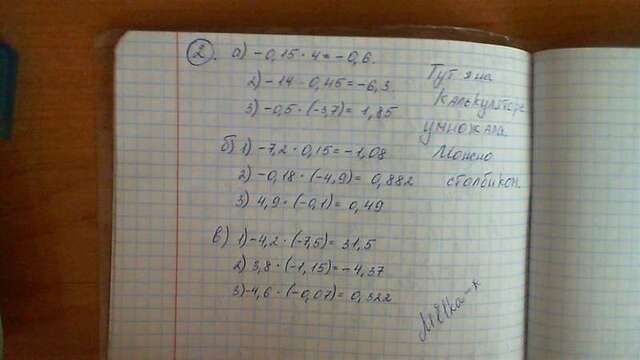 2. а) -0,15 · 4 = -0,6.
2) -14 · 0,45 = -6,3.
3) -0,5 · (-3,7) = 1,85
б) 1) -7,2 · 0,15 = -1,08
2) -0,18 · (-4,9) = 0,882
3) 4,9 · (-0,1) = 0,49
в) 1) -4,2 · (-7,5) = 31,5
2) 3,8 · (-1,15) = -4,37
3) -4,6 · (-0,07) = 0,322
Тут я на
калькуляторе
умножала
Можно
столбиком.